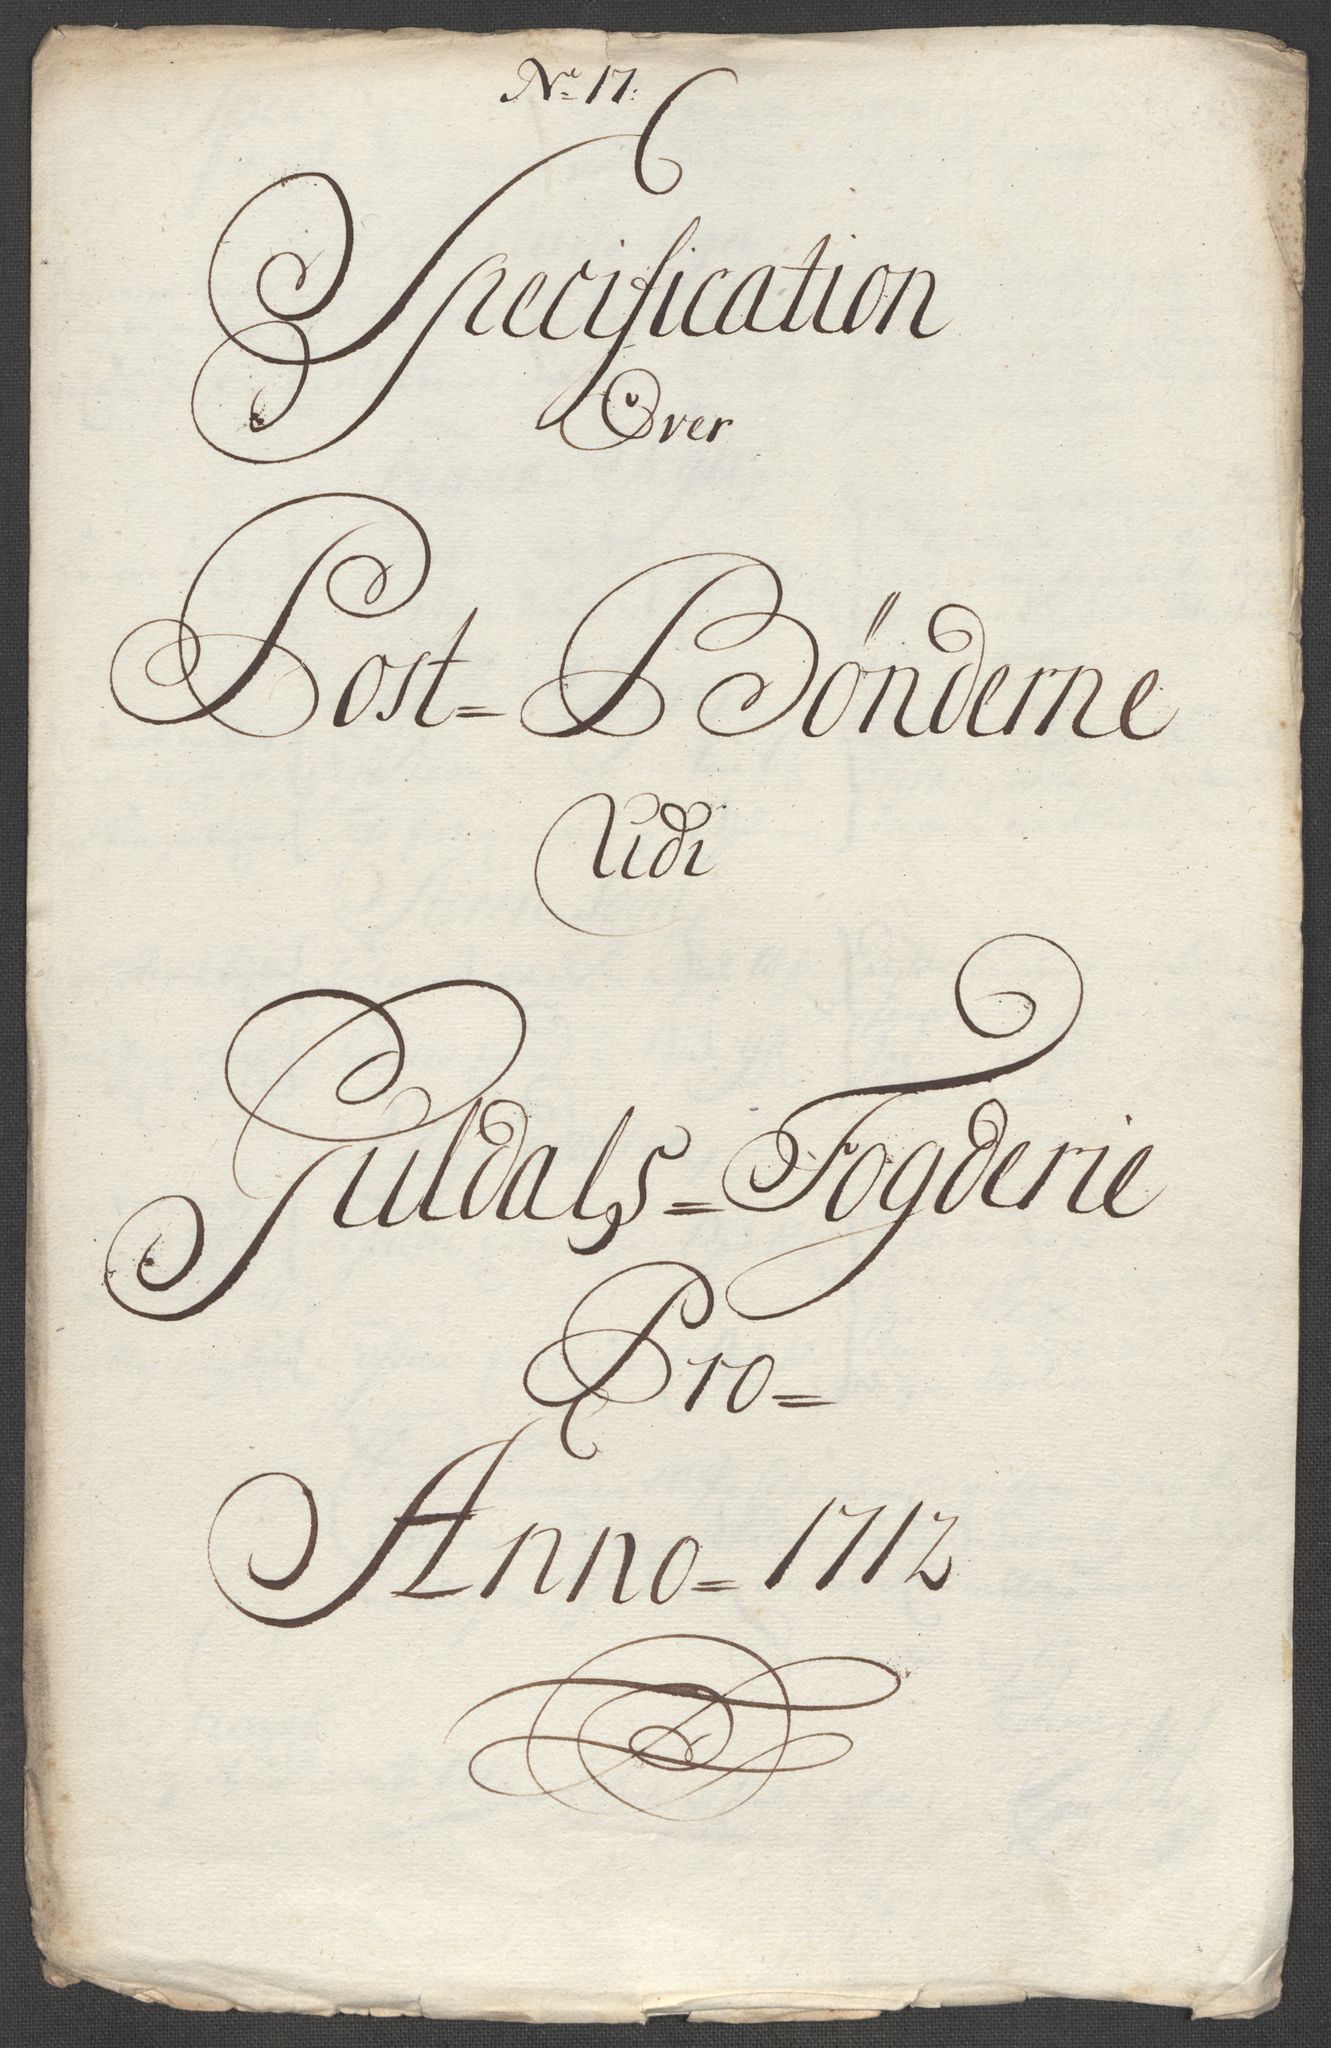 No 17:
Specification
Over
Post= Bønderne
Udi
Guldals= Fogderie
Pro=
Anno= 1712